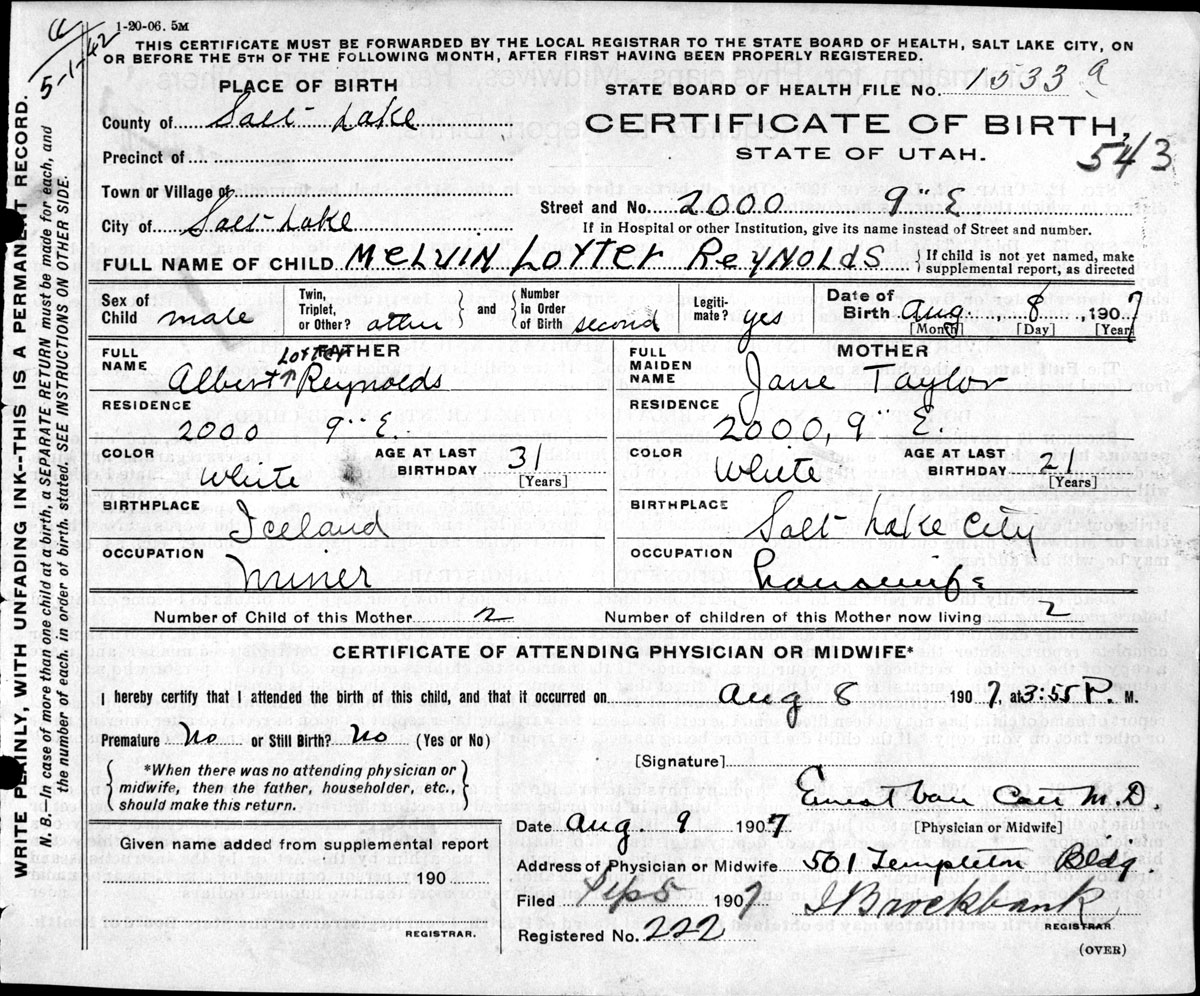 a
5-1-42
1-20-06. 5M
THIS CERTIFICATE MUST BE FORWARDED BY THE LOCAL REGISTRAR TO THE STATE BOARD OF HEALTH, SALT LAKE CITY, ON
OR BEFORE THE 5TH OF THE FOLLOWING MONTH, AFTER FIRST HAVING BEEN PROPERLY REGISTERED.
WRITE PLAINLY, WITH UNFADING INK--THIS IS A PERMANENT RECORD.
N. B.—In case of more than one child at a birth, a SEPARATE RETURN must be made for each, and
the number of each, in order of birth, stated. SEE INSTRUCTIONS ON OTHER SIDE.
PLACE OF BIRTH
STATE BOARD OF HEALTH FILE No. 1533 a
County of Salt Lake
CERTIFICATE OF BIRTH,
Precinct of
STATE OF UTAH.
543
Town or Village of
City of Salt Lake
Street and No. 2000 9" E
If in Hospital or other Institution, give its name instead of Street and number.
FULL NAME OF CHILD Melvin Lotter Reynolds
{ If child is not yet named, make
supplemental report, as directed
Sex of Child male
Twin, Triplet, or Other?
and
Number in Order of Birth second
Legiti- mate? yes
Date of Birth Aug 8, 1907
[Month] [Day] [Year]
FATHER
FULL NAME Albert Lotter Reynolds
RESIDENCE
2000 9" E.
COLOR White
AGE AT LAST BIRTHDAY 31
[Years]
BIRTHPLACE
Iceland
OCCUPATION
Miner
MOTHER
FULL MAIDEN NAME Jane Taylor
RESIDENCE
2000, 9 E.
COLOR White
AGE AT LAST BIRTHDAY 21
[Years]
BIRTHPLACE
Salt Lake City
OCCUPATION
Housewife
Number of Child of this Mother 2
Number of children of this Mother now living 2
CERTIFICATE OF ATTENDING PHYSICIAN OR MIDWIFE*
I hereby certify that I attended the birth of this child, and that it occurred on Aug 8 1907 at 3:55 P. M.
Premature No or Still Birth? No (Yes or No)
*When there was no attending physician or
midwife, then the father, householder, etc.,
should make this return.
[Signature]
Ernest Van Cott M.D.
Date Aug. 9 1907
[Physician or Midwife]
Given name added from supplemental report
190
REGISTRAR.
Address of Physician or Midwife 501 Templeton Bldg
Filed Sep 5 1907
J Brockbank
REGISTRAR
Registered No. 222
(OVER)